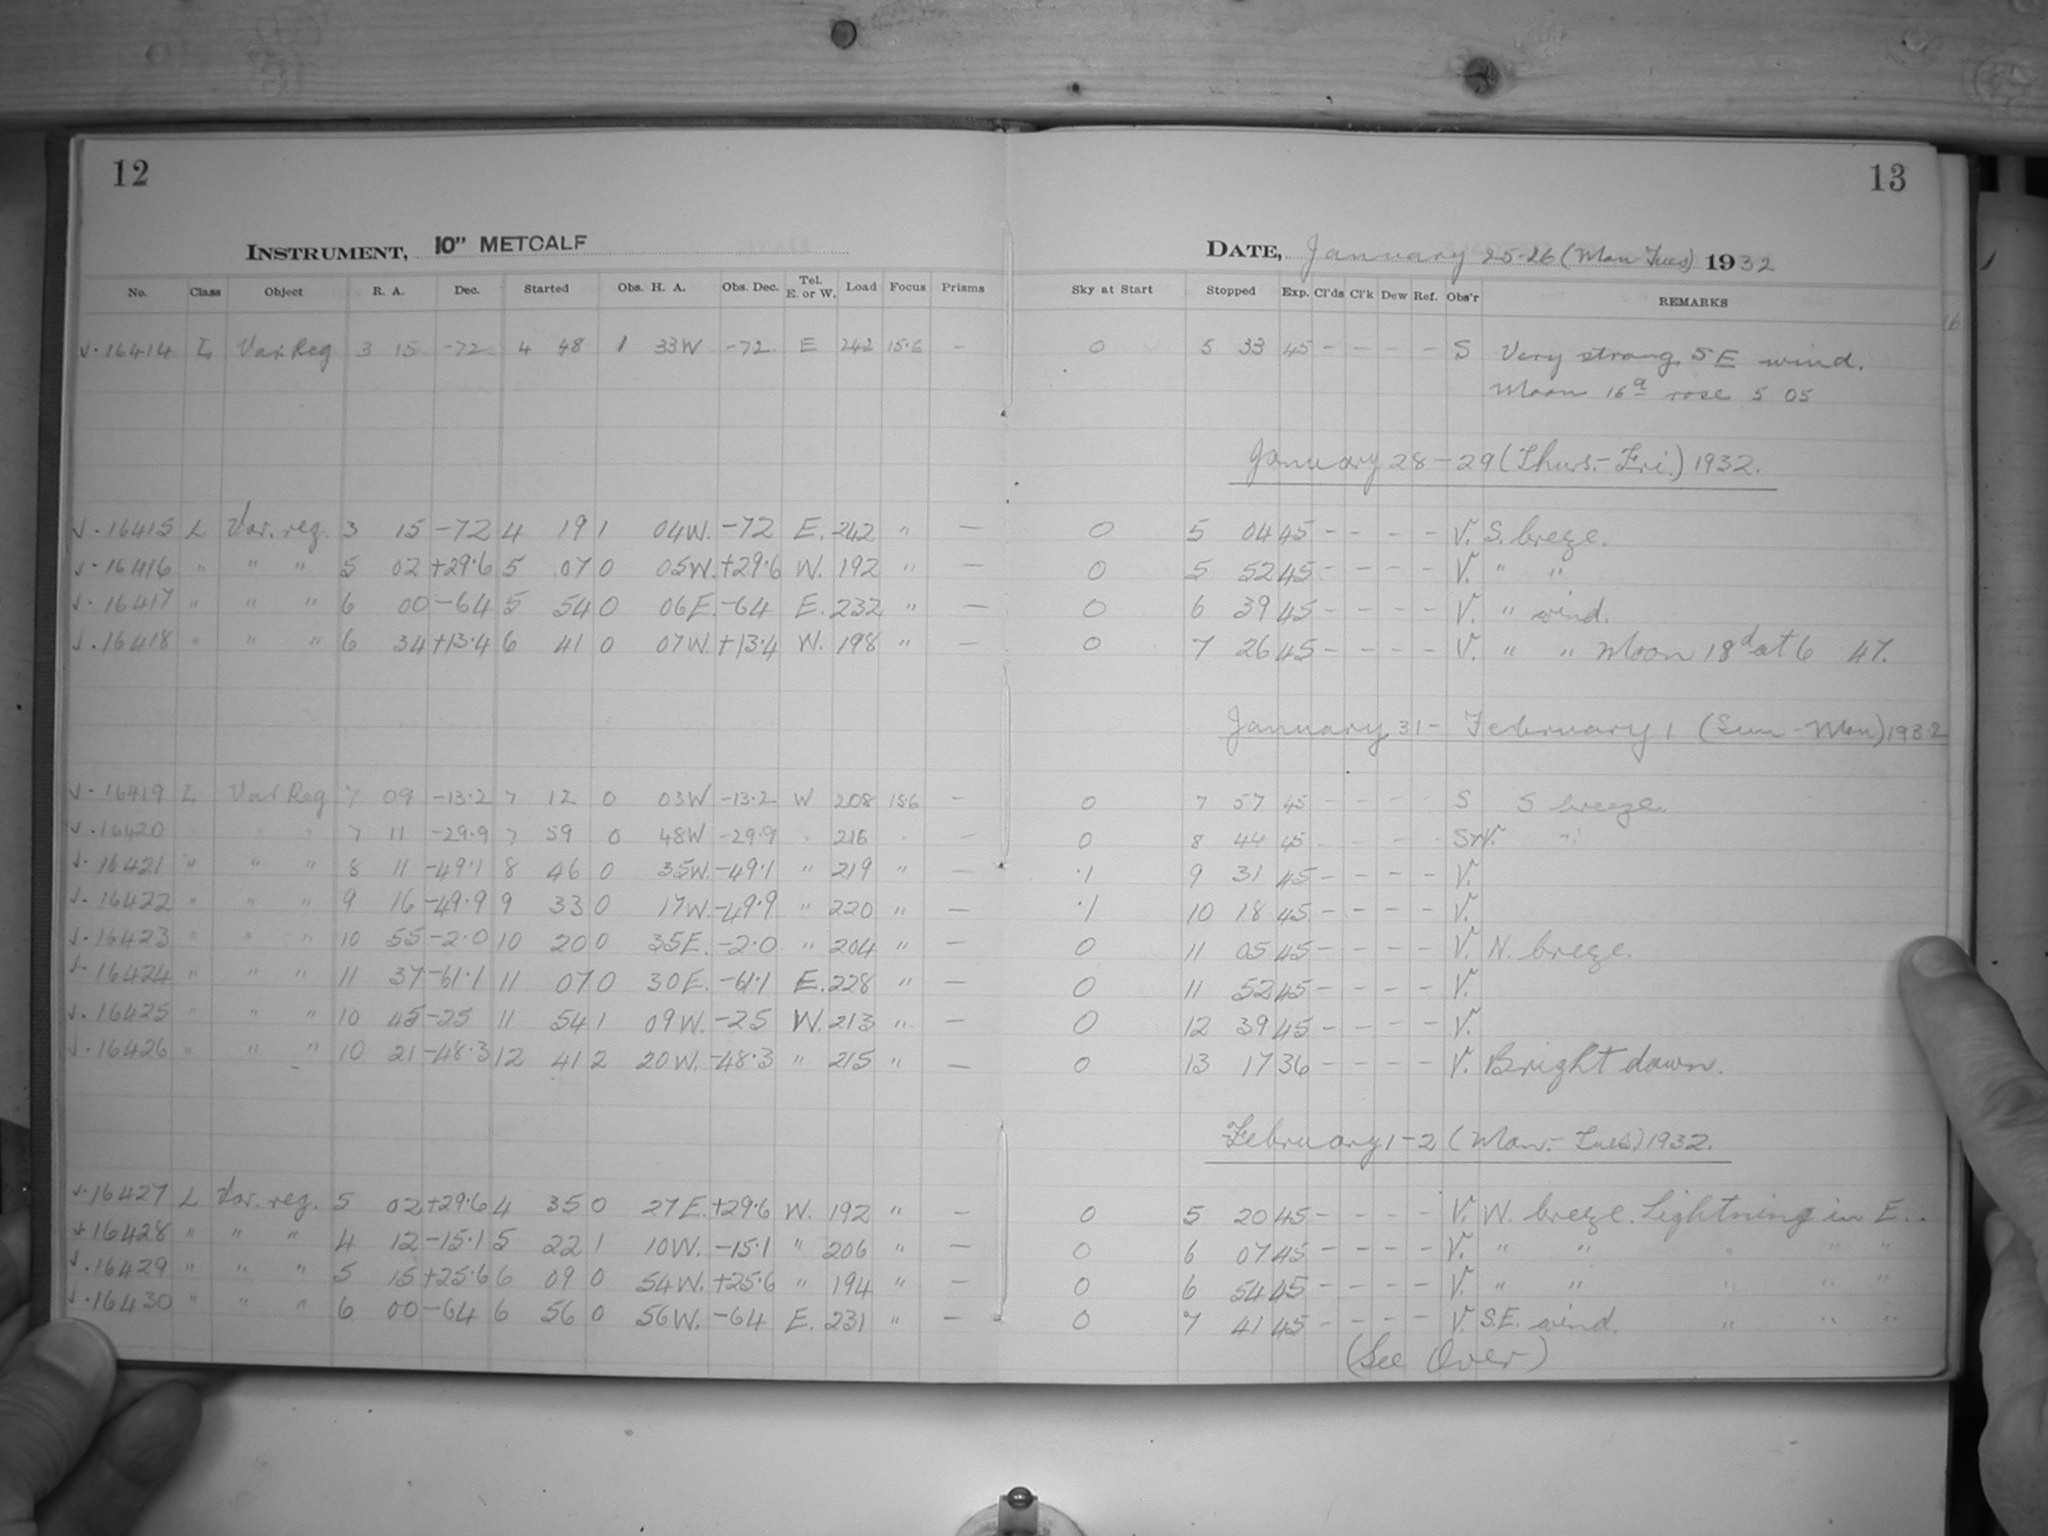 12
13
INSTRUMENT, 10" METCALF
DATE, January 25-26 (Mon Tues) 1932
No. Class Object R. A. Dec. Started Obs. H. A. Obs. Dec. Tel. E. or W. Load Focus Prisms Sky at Start Stopped Exp. Cl'ds Cl'k Dew Ref. Obs'r REMARKS
√·16414 L Var Reg 3 15 -72 4 48 1 33W -72 E 242 15.6 - 0 5 33 45 - - - - S Very strong SE wind.
Moon 16d rose 5 05
January 28-29 (Thurs.-Fri.) 1932.
√·16415 L Var. reg. 3 15 -72 4 19 1 04W. -72 E. 242 " - 0 5 04 45 - - - - V. S. breze.
√·16416 " " " 5 02 +29.6 5 07 0 05W. +29.6 W. 192 " - 0 5 52 45 - - - - V. " "
√·16417 " " " 6 00 -64 5 54 0 06E. -64 E. 232 " - 0 6 39 45 - - - - V. " wind.
√·16418 " " " 6 34 +13.4 6 41 0 07W. +13.4 W. 198 " - 0 7 26 45 - - - - V. " " Moon 18d at 6 47.
January 31 - February 1 (Sun - Mon) 1932
√·16419 L Var Reg 7 09 -13.2 7 12 0 03W -13.2 W 208 15.6 - 0 7 57 45 - - - - S S breeze.
√·16420 " " " 7 11 -29.9 7 59 0 48W -29.9 " 216 " - 0 8 44 45 - - - - S+V. "
√·16421 " " " 8 11 -49.1 8 46 0 35W. -49.1 " 219 " - .1 9 31 45 - - - - V.
√·16422 " " " 9 16 -49.9 9 33 0 17W -49.9 " 220 " - .1 10 18 45 - - - - V.
√·16423 " " " 10 55 -2.0 10 20 0 35E. -2.0 " 204 " - 0 11 05 45 - - - - V. N. breze.
√·16424 " " " 11 37 -61.1 11 07 0 30E. -61.1 E. 228 " - 0 11 52 45 - - - - V.
√·16425 " " " 10 45 -25 11 54 1 09W. -25 W. 213 " - 0 12 39 45 - - - - V.
√·16426 " " " 10 21 -48.3 12 41 2 20W. -48.3 " 215 " - 0 13 17 36 - - - - V. Bright dawn.
February 1-2 (Mon.- Tues) 1932.
√·16427 L Var. reg. 5 02 +29.6 4 35 0 27E. +29.6 W. 192 " - 0 5 20 45 - - - - V. W. breze. Lightning in E..
√·16428 " " " 4 12 -15.1 5 22 1 10W. -15.1 " 206 " - 0 6 07 45 - - - - V. " " " " "
√·16429 " " " 5 15 +25.6 6 09 0 54W. +25.6 " 194 " - 0 6 54 45 - - - - V. " " " " "
√·16430 " " " 6 00 -64 6 56 0 56W. -64 E. 231 " - 0 7 41 45 - - - - V. S.E. wind. " " "
(See Over)